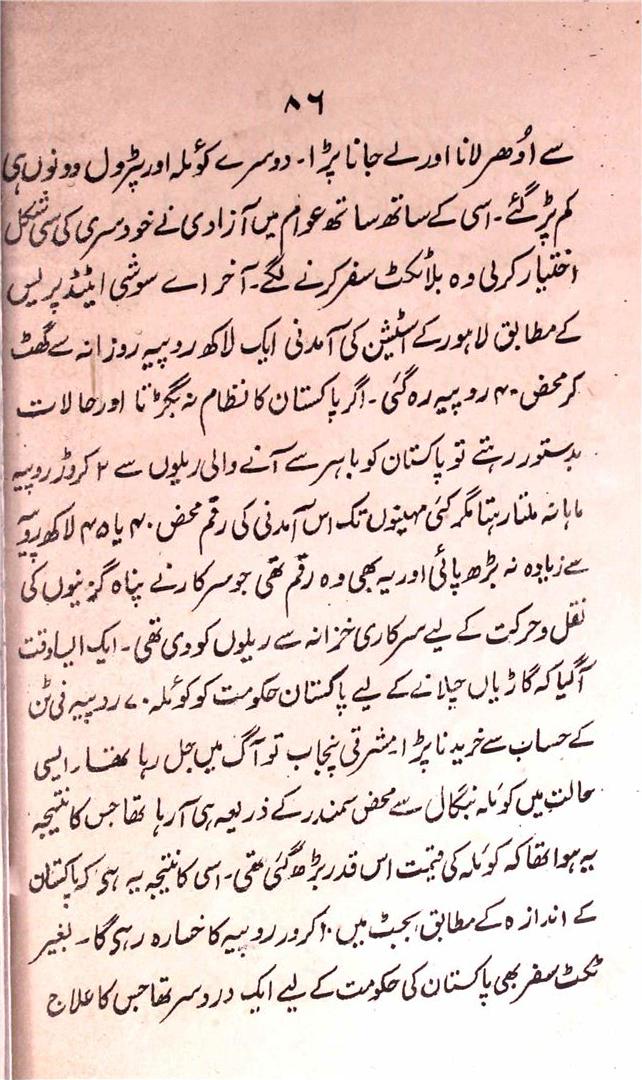 ۸۶
سے اُدھر لانا اور لے جانا پڑا۔ دوسرے کوئلہ اور پٹرول دونوں ہی
کم پڑ گئے۔ اسی کے ساتھ ساتھ عوام میں آزادی نے خودسری کی سی شکل
اختیار کر لی وہ بلا ٹکٹ سفر کرنے لگے۔ آخر اے سوشی ایٹیڈ پریس
کے مطابق لاہور کے اسٹیشن کی آمدنی ایک لاکھ روپیہ روزانہ سے گھٹ
کر محض ۴۰ روپیہ رہ گئی۔ اگر پاکستان کا نظام نہ بگڑتا اور حالات
بدستور رہتے تو پاکستان کو باہر سے آنے والی ریلوں سے ۲ کروڑ روپیہ
ماہانہ ملتا رہتا مگر کئی مہینوں تک اس آمدنی کی رقم محض ۴۰ یا ۴۵ لاکھ روپیہ
سے زیادہ نہ بڑھ پائی اور یہ بھی وہ رقم تھی جو سرکار نے پناہ گزینوں کی
نقل و حرکت کے لیے سرکاری خزانہ سے ریلوں کو دی تھی۔ ایک ایسا وقت
آگیا کہ گاڑیاں چلانے کے لیے پاکستان حکومت کو کوئلہ ۷۰ روپیہ فی ٹن
کے حساب سے خریدنا پڑا۔ مشرقی پنجاب تو آگ میں جل رہا تھا۔ ایسی
حالت میں کوئلہ بنگال سے محض سمندر کے ذریعہ ہی آ رہا تھا جس کا نتیجہ
یہ ہوا تھا کہ کوئلہ کی قیمت اس قدر بڑھ گئی تھی۔ اسی کا نتیجہ یہ ہے کہ پاکستان
کے اندازہ کے مطابق بجٹ میں ۱۰ کرور روپیہ کا خسارہ رہے گا۔ بغیر
ٹکٹ سفر بھی پاکستان کی حکومت کے لیے ایک دردسر تھا جس کا علاج